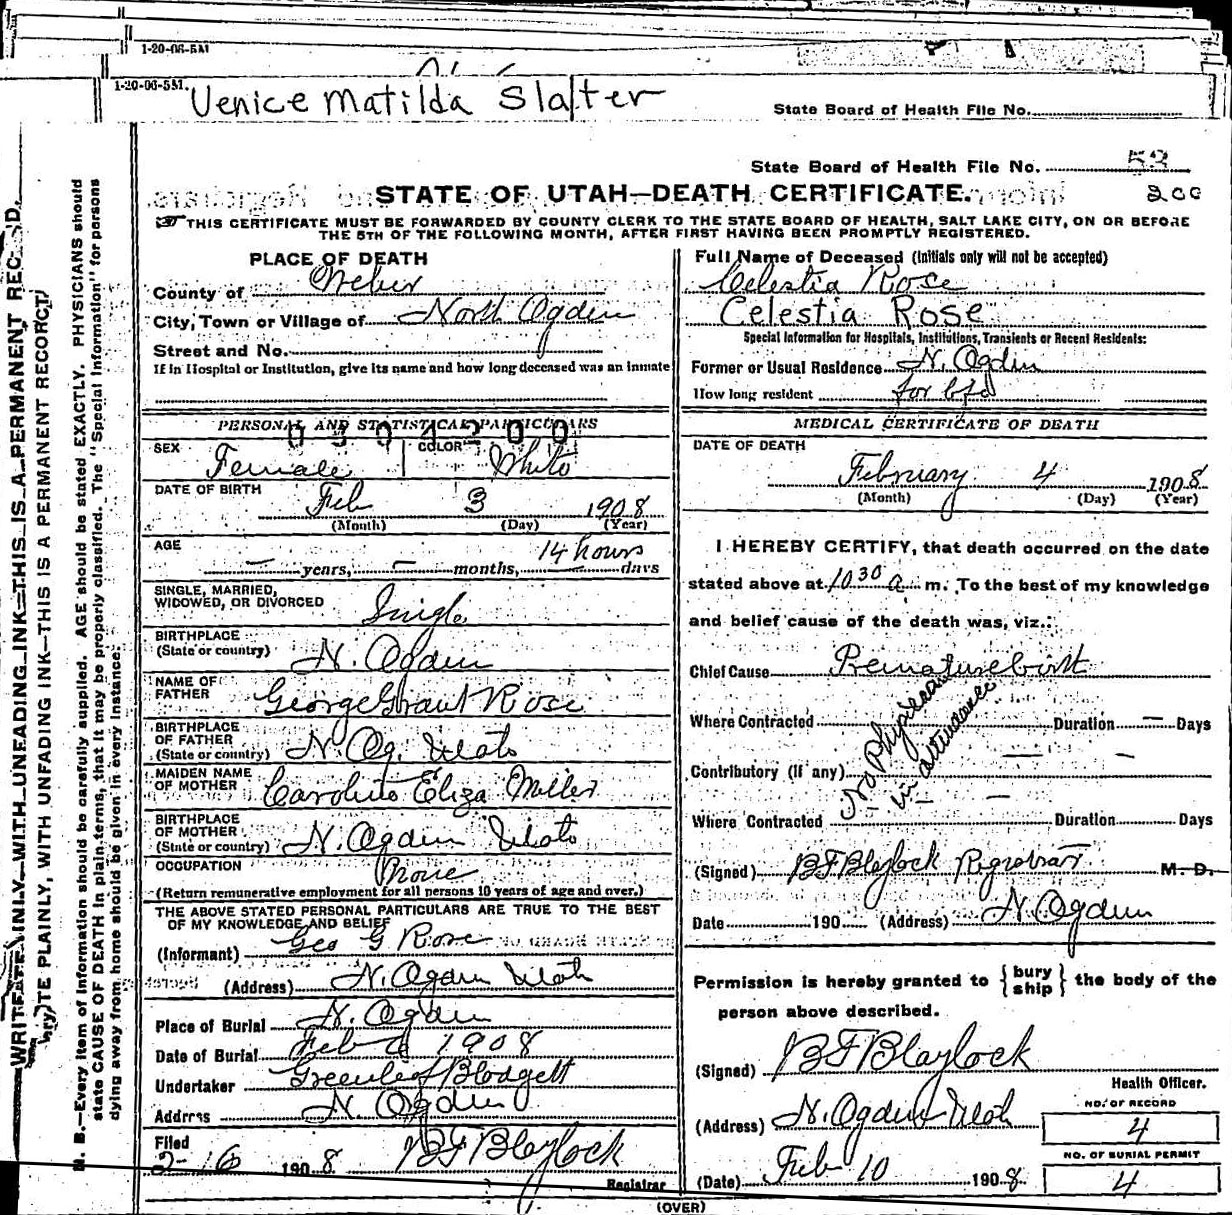 1-20-06-5M
1-20-06-5M.
Venice Matilda Slatter
State Board of Health File No.
State Board of Health File No. 53
STATE OF UTAH—DEATH CERTIFICATE. 200
THIS CERTIFICATE MUST BE FORWARDED BY COUNTY CLERK TO THE STATE BOARD OF HEALTH, SALT LAKE CITY, ON OR BEFORE
THE 5TH OF THE FOLLOWING MONTH, AFTER FIRST HAVING BEEN PROMPTLY REGISTERED.
WRITE PLAINLY, WITH UNFADING INK—THIS IS A PERMANENT RECORD.
N. B.—Every item of information should be carefully supplied. AGE should be stated EXACTLY. PHYSICIANS should
state CAUSE OF DEATH in plain terms, that it may be properly classified. The "Special Information" for persons
dying away from home should be given in every instance.
PLACE OF DEATH
County of Weber
City, Town or Village of North Ogden
Street and No.
If in Hospital or Institution, give its name and how long deceased was an inmate
PERSONAL AND STATISTICAL PARTICULARS
0301200
SEX Female COLOR White
DATE OF BIRTH Feb 3 1908
(Month) (Day) (Year)
AGE 14 hours
— years, — months, — days
SINGLE, MARRIED,
WIDOWED, OR DIVORCED Single
BIRTHPLACE
(State or country) N. Ogden
NAME OF
FATHER George Grant Rose
BIRTHPLACE
OF FATHER
(State or country) N. Og. Utah
MAIDEN NAME
OF MOTHER Caroline Eliza Miller
BIRTHPLACE
OF MOTHER
(State or country) N. Ogden Utah
OCCUPATION None
(Return remunerative employment for all persons 10 years of age and over.)
THE ABOVE STATED PERSONAL PARTICULARS ARE TRUE TO THE BEST
OF MY KNOWLEDGE AND BELIEF
(Informant) Geo G Rose
(Address) N. Ogden Utah
Place of Burial N. Ogden
Date of Burial Feb 1908
Undertaker Greenleaf Blodgett
Address N. Ogden
Filed
2- 16 1908 BF Blaylock
Registrar
Full Name of Deceased (Initials only will not be accepted)
Celestia Rose
Celestia Rose
Special Information for Hospitals, Institutions, Transients or Recent Residents:
Former or Usual Residence N. Ogden
How long resident for
MEDICAL CERTIFICATE OF DEATH
DATE OF DEATH
February 4 1908
(Month) (Day) (Year)
I HEREBY CERTIFY, that death occurred on the date
stated above at 10 30 a m. To the best of my knowledge
and belief cause of the death was, viz.:
Chief Cause Premature birth
Where Contracted Duration — Days
Contributory (if any)
No physician
in attendance
Where Contracted Duration Days
(Signed) BF Blaylock Registrar M. D.
Date 190 (Address) N. Ogden
Permission is hereby granted to { bury ship } the body of the
person above described.
(Signed) BF Blaylock
Health Officer.
(Address) N. Ogden Utah
NO. OF RECORD
4
NO. OF BURIAL PERMIT
(Date) Feb 10 1908 4
(OVER)